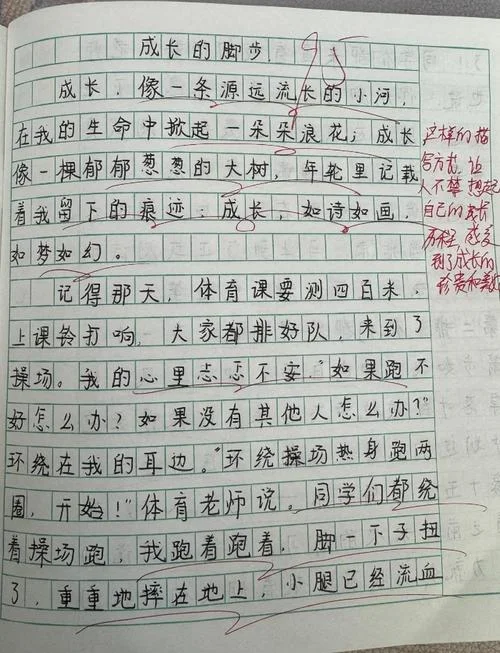 成长的脚步
95
成长，像一条源远流长的小河，
在我的生命中掀起一朵朵浪花；成长
像一棵郁郁葱葱的大树，年轮里记载
着我留下的痕迹；成长，如诗如画，
如梦如幻。
这样的描
写方式，让
人不禁想起
自己的成长
历程，感受
到了成长的
珍贵和美好
记得那天，体育课要测四百米，
上课铃打响，大家都排好队，来到了
操场。我的心里忐忑不安。“如果跑不
好怎么办？如果没有其他人怎么办？”
环绕在我的耳边。“环绕操场热身跑两
圈，开始！”体育老师说。同学们都绕
着操场跑，我跑着跑着，脚一下子扭
了，重重地摔在地上，小腿已经流血